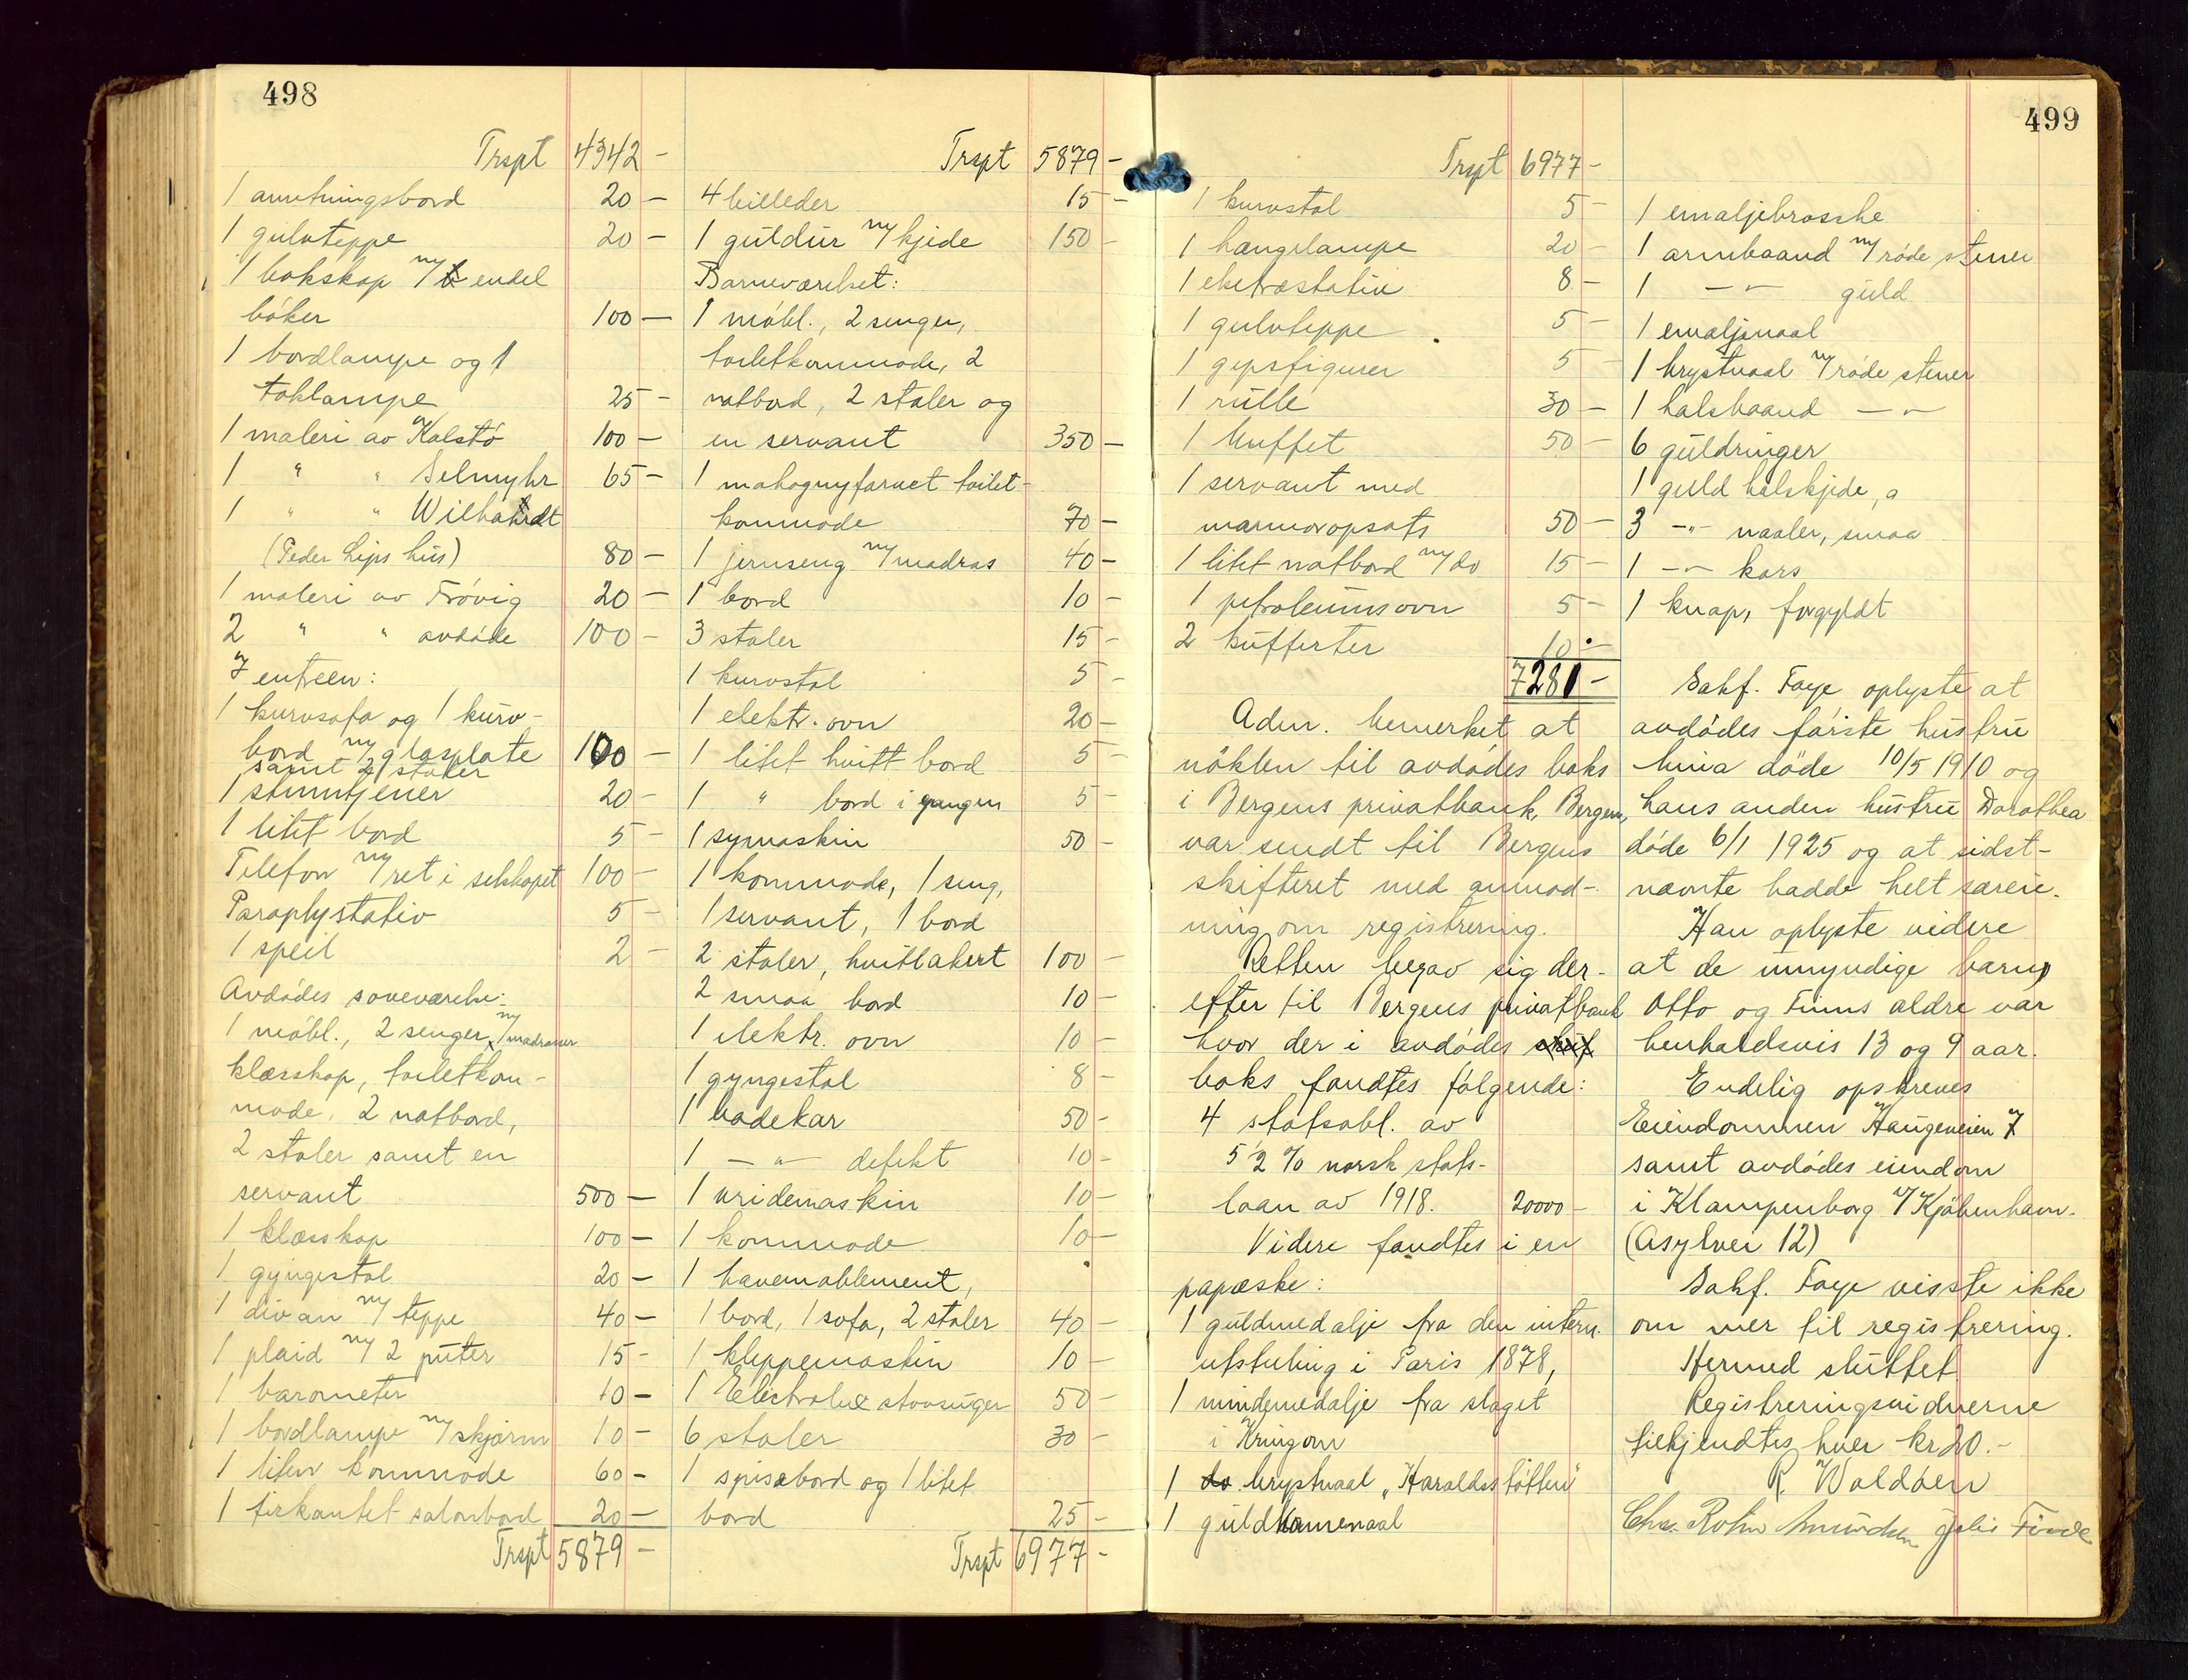 498
Trspt 4342 -
1 anretningsbord 20 -
1 gulvteppe 20 -
1 bokskap m/ endel
bøker 100 -
1 bordlampe og 1
taklampe 25 -
1 maleri av Kalstø 100 -
1 " " Selmyhr 65 -
1 " " Wilhardt
(Peder Lips hus) 80 -
1 maleri av Frøvig 20 -
2 " " avdøde 100 -
I entreen:
1 kurvsofa og 1 kurv-
bord m/ glasplate 100 -
samt 2 stoler
1 stumtjener 20 -
1 litet bord 5 -
Telefon m/ ret i selskapet 100 -
Paraplystativ 5 -
1 speil 2 -
Avdødes soveværelse:
1 møbl., 2 senger m/madrasser
klæsskap, toiletkom-
mode, 2 natbord,
2 stoler samt en
servant 500 -
1 klæsskap 100 -
1 gyngestol 20 -
1 divan m/ teppe 40 -
1 plaid m/ 2 puter 15 -
1 barometer 10 -
1 bordlampe m/ skjærm 10 -
1 liten kommode 60 -
1 firkantet salonbord 20 -
Trspt 5879 -
Trspt 5879 -
4 billeder 15 -
1 guldur m/ kjede 150 -
Barneværelset:
1 møbl., 2 senger,
toiletkommode, 2
natbord, 2 stoler og
en servant 350 -
1 mahognyfarvet toilet-
kommode 70 -
1 jernseng m/madras 40 -
1 bord 10 -
3 stoler 15 -
1 kurvstol 5 -
1 elektr. ovn 20 -
1 litet hvitt bord 5 -
1 " bord i gangen 5 -
1 symaskin 50 -
1 kommode, 1 seng,
1 servant, 1 bord
2 stoler, hvitlakert 100 -
2 smaa bord 10 -
1 elektr. ovn 10 -
1 gyngestol 8 -
1 badekar 50 -
1 - " - defekt 10 -
1 vridemaskin 10 -
1 kommode 10 -
1 havemøblement,
1 bord, 1 sofa, 2 stoler 40 -
1 klippemaskin 10 -
1 Electrolux støvsuger 50 -
6 stoler 30 -
1 spisebord og 1 litet
bord 25 -
Trspt 6977 -
499
Trspt 6977 -
1 kurvstol 5 -
1 hængelampe 20 -
1 ekstrastativ 8 -
1 gulvteppe 5 -
1 gipsfigurer 5 -
1 rulle 30 -
1 buffet 50 -
1 servant med
marmoropsats 50 -
1 litet natbord m/ do 15 -
1 petroleumsovn 5 -
2 kufferter 10 -
7281 -
Adm. bemerket at
nøklen til avdødes boks
i Bergens privatbank, Bergen,
var sendt til Bergens
skifteret med anmod-
ning om registrering.
Retten begav sig der-
efter til Bergens privatbank
hvor der i avdødes skrif
boks fandtes følgende:
4 statsobl. av
5 1/2 % norsk stats-
laan av 1918. 20000 -
Videre fandtes i en
papæske:
1 guldmedalje fra den intern.
utstilling i Paris 1878,
1 mindemedalje fra slaget
i Kringom
1 do brystnaal "Haraldsstøtten"
1 guld damenaal
1 emaljebrosche
1 armbaand m/ røde stener
1 - " - guld
1 emaljenaal
1 brystnaal m/ røde stener
1 halsbaand - " -
6 guldringer
1 guld halskjede, a
3 - " - naaler, smaa
1 - " - kors
1 knap, forgyldt
Sakf. Faye oplyste at
avdødes første hustru
Mina døde 10/5 1910 og
hans anden hustru Dorothea
døde 6/1 1925 og at sidst-
nævnte hadde helt særeie.
Han oplyste videre
at de umyndige barns
Otto og Finns aldre var
henholdsvis 13 og 9 aar.
Endelig opskreves
Eiendommen Haugeveien 7
samt avdødes eiendom
i Klampenborg v/ Kjøbenhavn.
(Asylvei 12)
Sakf. Faye visste ikke
om mer til registrering.
Hermed sluttet
Registreringsvidnerne
tilkjendtes hver kr 20.-
R. Waldøen